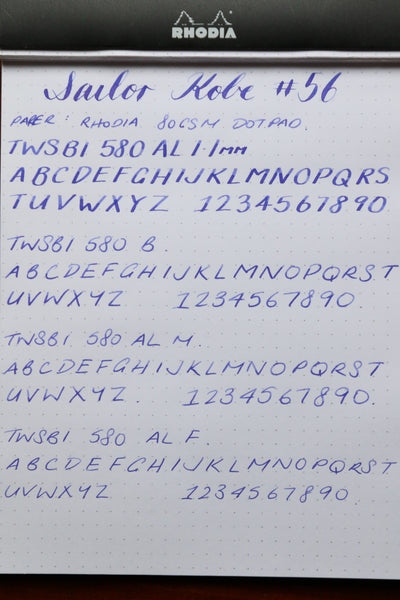 RHODIA
Sailor Kobe #56
PAPER: RHODIA 80GSM DOTPAD.
TWSBI 580 AL 1.1mm
ABCDEFGHIJKLMNOPQRS
TUVWXYZ 1234567890
TWSBI 580 B.
ABCDEFGHIJKLMNOPQRST
UVWXYZ 1234567890.
TWSBI 580 AL M.
ABCDEFGHIJKLMNOPQRST
UVWXYZ. 1234567890.
TWSBI 580 AL F.
ABCDEFGHIJKLMNOPQRST
UVWXYZ 1234567890.